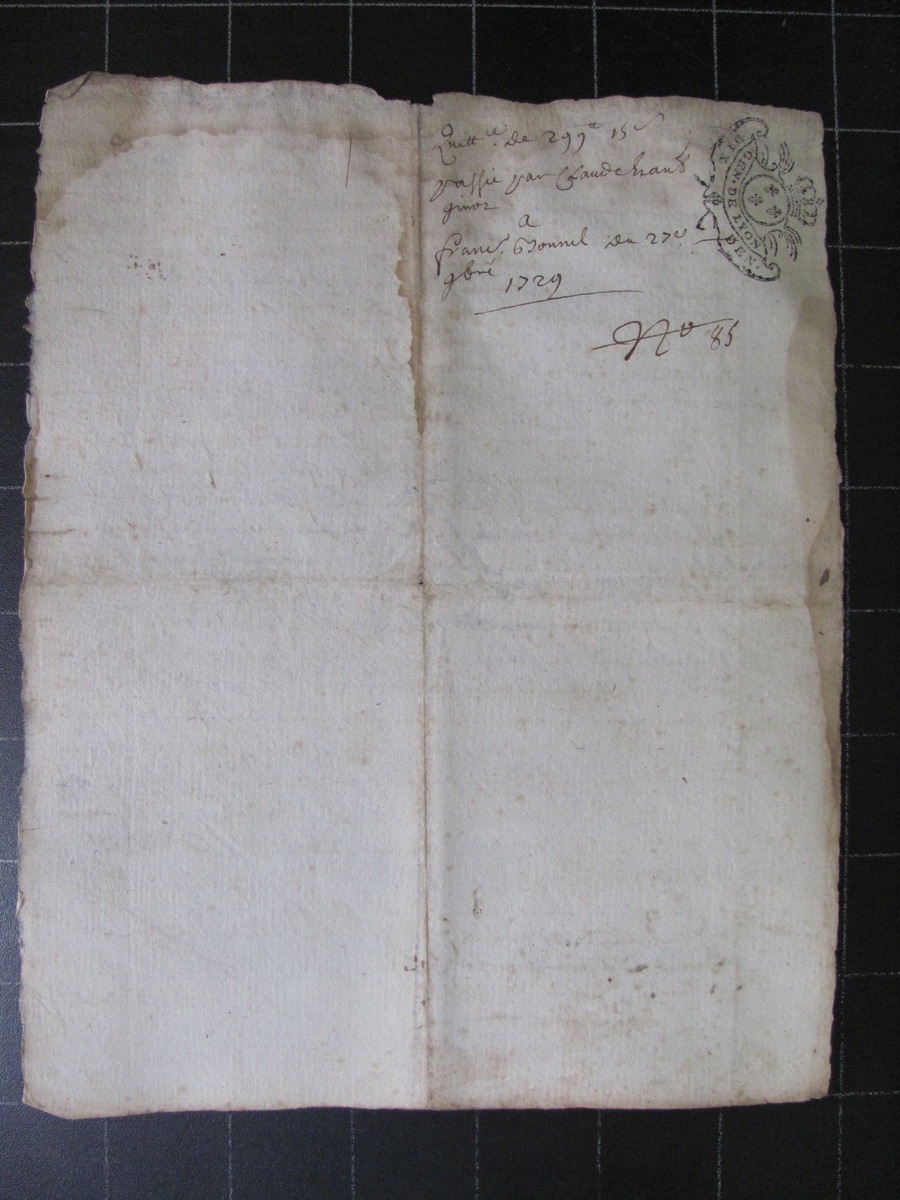 Quitt.ce de 299tt 15s
passée par Claude frans
ginot
a
franc. Bonnel du 27e
9bre
1729
No 85
GEN. DE LYON
DIX DEN.